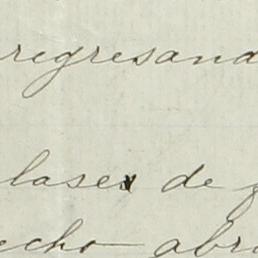 regresand
clases de
echo abr